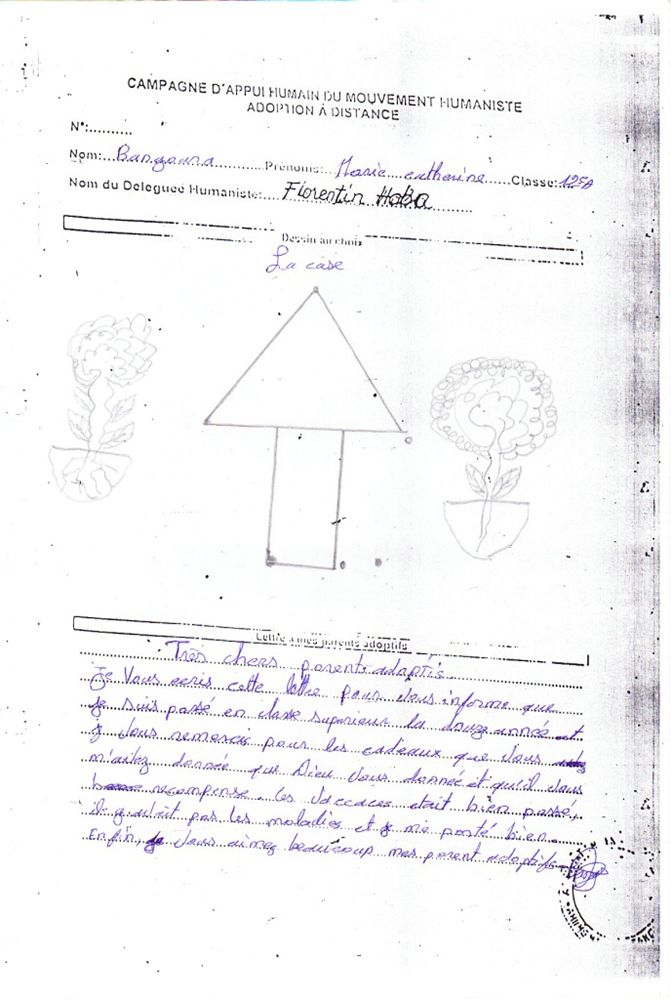 CAMPAGNE D'APPUI HUMAIN DU MOUVEMENT HUMANISTE
ADOPTION À DISTANCE
N°:..........
Nom:..Bangoura..........Prénoms:..Marie catherine.....Classe:12èA
Nom du Deleguee Humaniste:...Florentin Haba..........
Dessin au choix
La case
Lettre à mes parents adoptifs
Très chers parents adoptis
Je Vous ecris cette lettre pour Vous informe que
Je suis passé en classe superieus la douz année et
je Vous remercie pour les cadeaux que Vous
m'aviez donnée que Dieu Vous donnée et qu'il Vous
recompense. les Vaccaces etait bien passé,
il y avait pas les maladies et je me porté bien.
Enfin, je Vous aimez beaucoup mes parent adoptifs